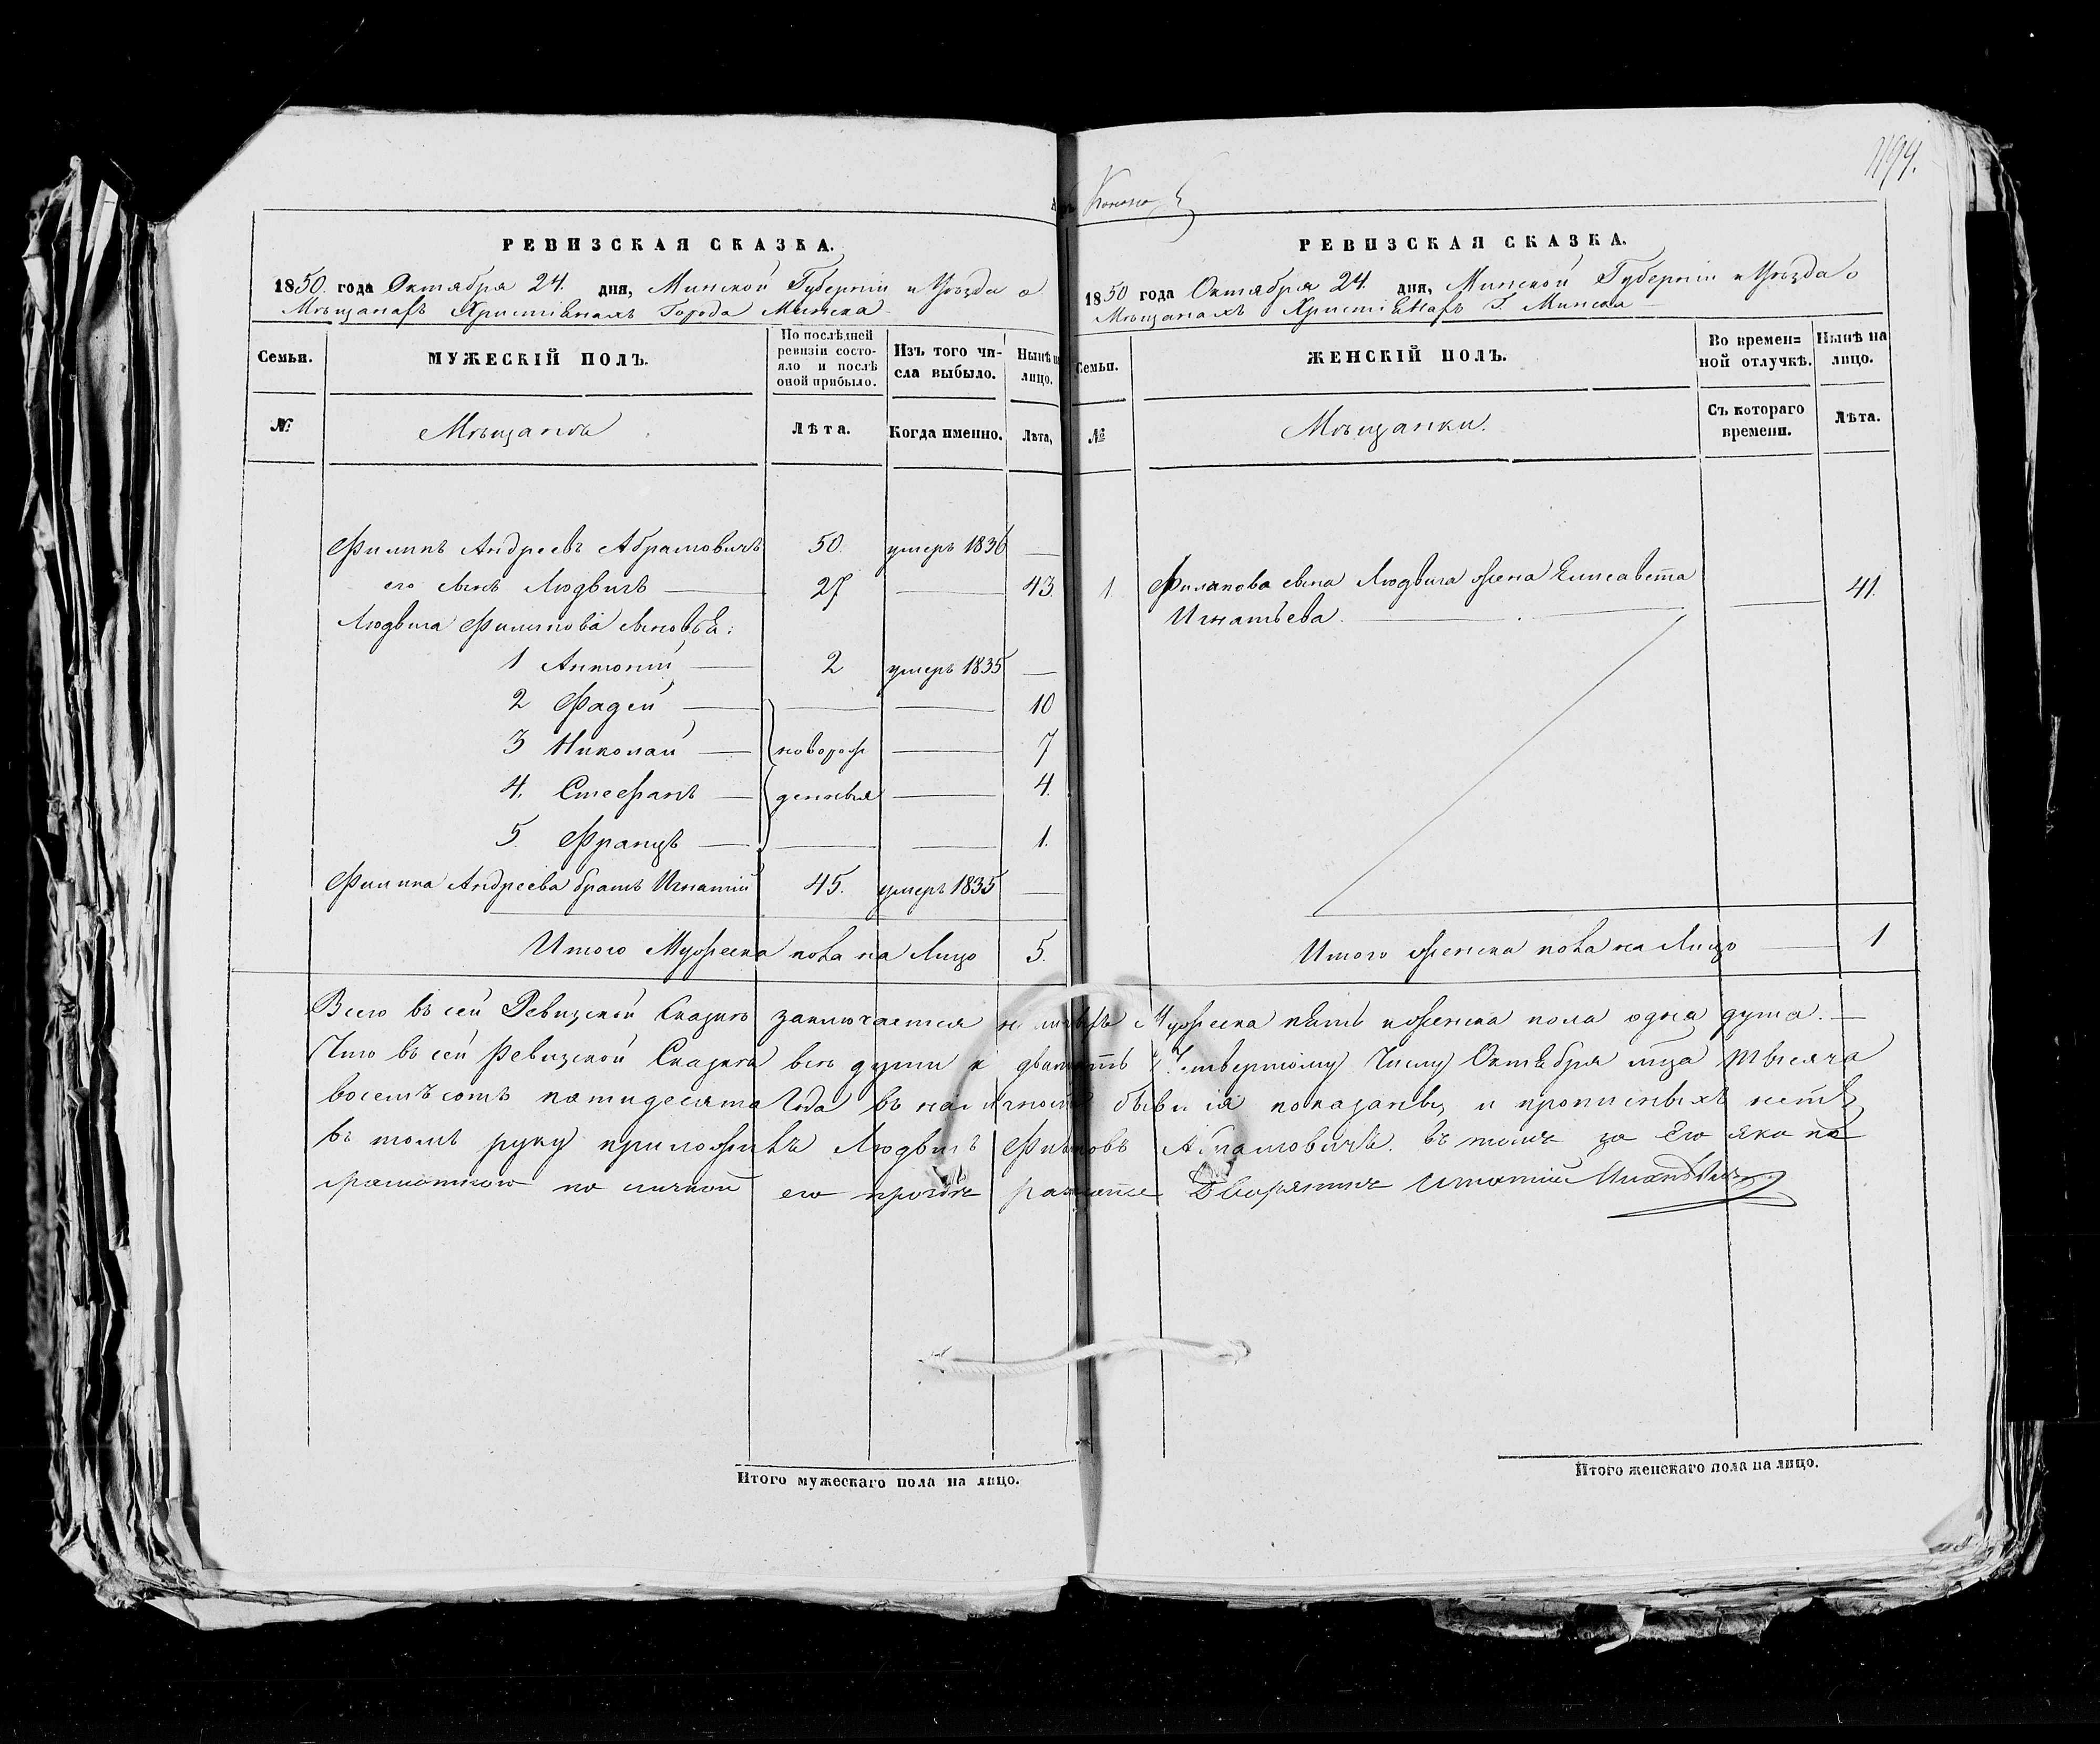 1199.
РЕВИЗСКАЯ СКАЗКА.
1850. года Октября 24. дня, Минской Губерніи и Уѣзда о
Мѣщанахъ Христіянахъ Города Минска
Семьи.
МУЖЕСКІЙ ПОЛЪ.
По послѣдней
ревизіи состо-
яло и послѣ
оной прибыло.
Изъ того чи-
сла выбыло.
Нынѣ на
лицо.
№
Мѣщанъ
Лѣта.
Когда именно.
Лѣта,
Филипъ Андреевъ Абрамовичъ 50. умеръ 1836 —
его сынъ Людвигъ — 27 — 43.
Людвига Филипова сыновья:
1 Антоній — 2 умеръ 1835 —
2 Фадей — — — 10
3 Николай — новорож — 7
4. Стефанъ — денныя — 4.
5. Францъ — — — 1.
Филипа Андреева братъ Игнатій 45. умеръ 1835 —
Итого Мужеска пола на Лицо 5.
РЕВИЗСКАЯ СКАЗКА.
1850 года Октября 24. дня, Минской Губерніи и Уѣзда о
Мѣщанахъ Христіянахъ Г. Минска
Семьи.
ЖЕНСКІЙ ПОЛЪ.
Во времен=
ной отлучкѣ.
Нынѣ на
лицо.
№
Мѣщанки.
Съ котораго
времени.
Лѣта.
1 Филипова сына Людвига жена Елисавета — 41.
Игнатьева.
Итого женска пола на Лицо — 1
Всего въ сей Ревизской Сказкѣ заключается на лицѣ Мужеска пять и женска пола одна душа. —
Что въ сей Ревизской Сказкѣ всѣ души к двадцать Четвертому Числу Октября мца тысяча
восемъсотъ пятидесята Года въ наличности бывшія показаны, и прописныхъ нетъ,
въ томъ руку приложилъ Людвигъ Филиповъ Абрамовичъ. въ томъ за Его яко не
грамотного по личной его прозбе Дворянинъ Игнатій
Итого мужескаго пола на лицо.
Итого женскаго пола на лицо.